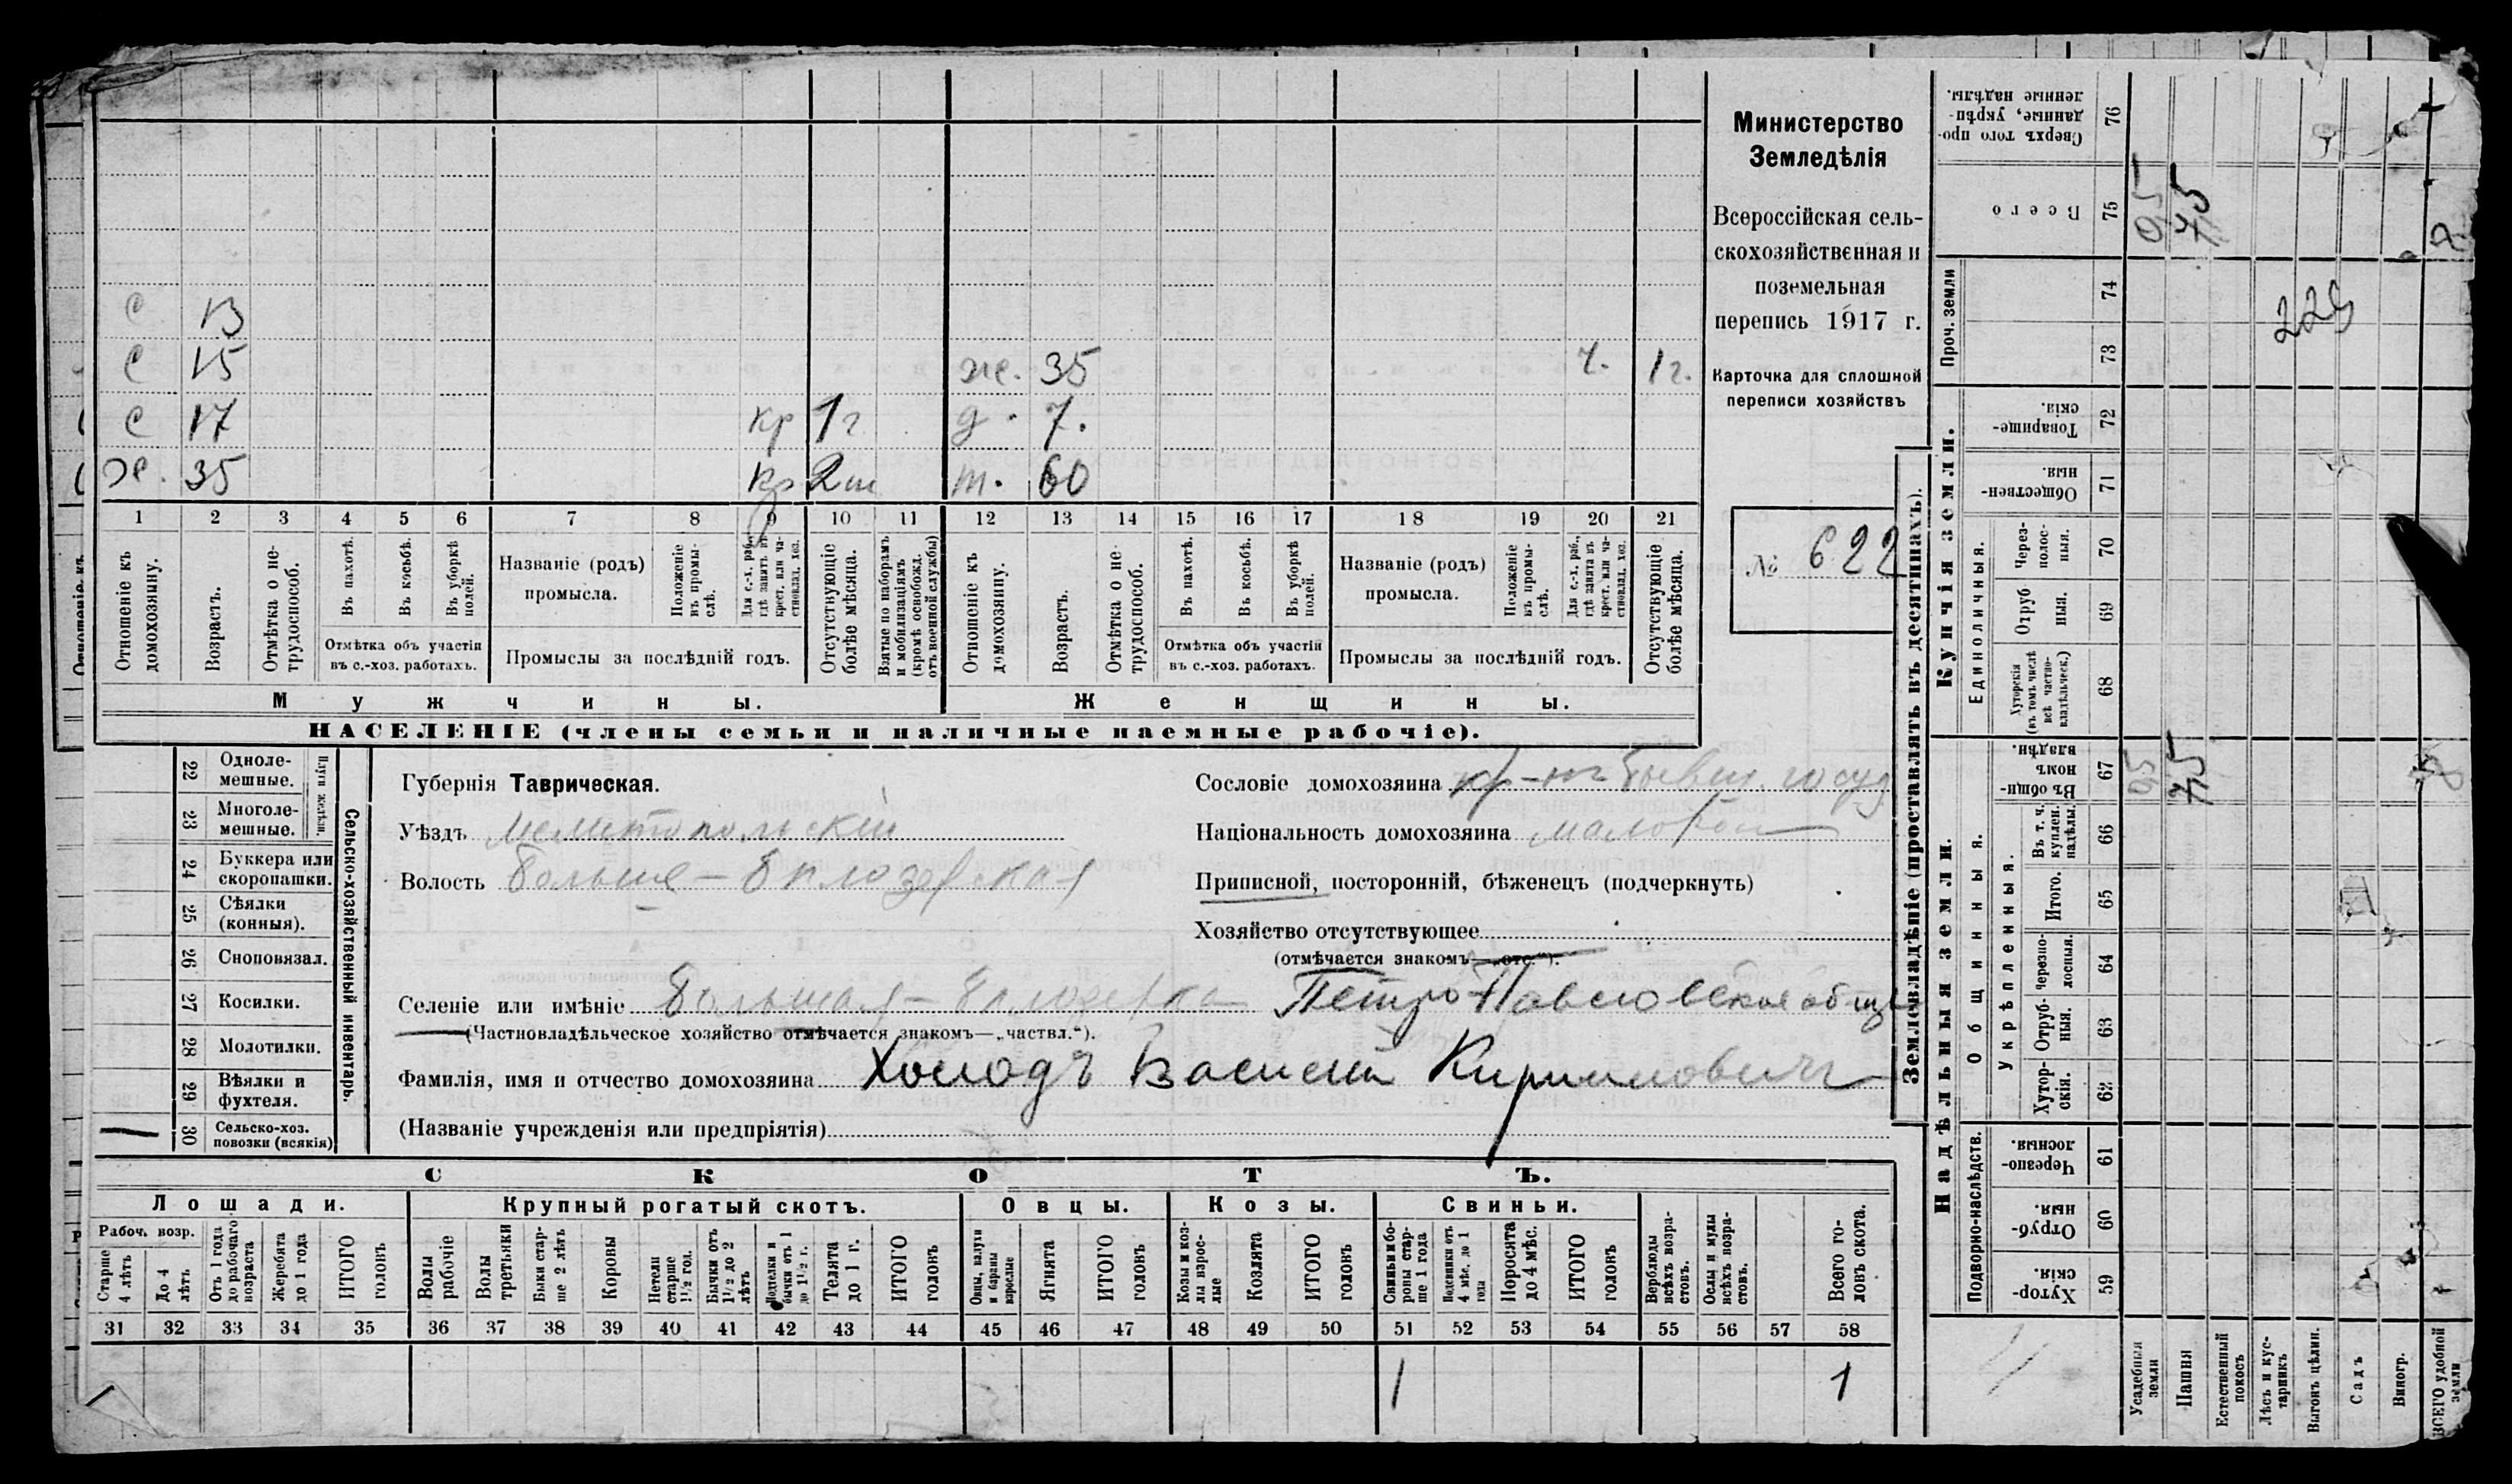 с 13
с 15 ж. 35 ч. 1 г.
с 17 кр 1 г д. 7.
х. 35 кр 2 м. 60
1 2 3 4 5 6 7 8 9 10 11 12 13 14 15 16 17 18 19 20 21
Отношеніе къ домохозяину.
Возрастъ.
Отмѣтка о нетрудоспособ.
Въ пахотѣ.
Въ косьбѣ.
Въ уборкѣ полей.
Отмѣтка объ участіи
въ с.-хоз. работахъ.
Названіе (родъ)
промысла.
Положеніе въ промыслѣ.
Для с.-х. раб., гдѣ занятъ въ крест. или частновлад. хоз.
Промыслы за послѣдній годъ.
Отсутствующіе болѣе мѣсяца.
Взятые по наборамъ и мобилизаціямъ (кромѣ освобожд. отъ военной службы)
Отношеніе къ домохозяину.
Возрастъ.
Отмѣтка о нетрудоспособ.
Въ пахотѣ.
Въ косьбѣ.
Въ уборкѣ полей.
Отмѣтка объ участіи
въ с.-хоз. работахъ.
Названіе (родъ)
промысла.
Положеніе въ промыслѣ.
Для с.-х. раб., гдѣ занята въ крест. или частновлад. хоз.
Промыслы за послѣдній годъ.
Отсутствующіе болѣе мѣсяца.
Мужчины. Женщины.
НАСЕЛЕНІЕ (члены семьи и наличные наемные рабочіе).
Министерство
Земледѣлія
Всероссійская сель-
скохозяйственная и
поземельная
перепись 1917 г.
Карточка для сплошной
переписи хозяйствъ
№ 622
22 Одноле-
мешные.
23 Многоле-
мешные.
Плуги желѣзн.
24 Буккера или
скоропашки.
25 Сѣялки
(конныя).
26 Сноповязал.
27 Косилки.
28 Молотилки.
29 Вѣялки и
фухтеля.
30 Сельско-хоз.
повозки (всякія)
Сельско-хозяйственный инвентарь.
Губернія Таврическая.
Уѣздъ Мелитопольскій
Волость Больше-Бѣлозерская
Сословіе домохозяина кр-нъ бывш. госуд
Національность домохозяина малорос
Приписной, посторонній, бѣженецъ (подчеркнуть)
Хозяйство отсутствующее
(отмѣчается знакомъ—„отс.“).
Селеніе или имѣніе Большая-Бѣлозерка Петро-Павловское общ
(Частновладѣльческое хозяйство отмѣчается знакомъ—„частвл.“).
Фамилія, имя и отчество домохозяина Холодъ Василій Кирилловичъ
(Названіе учрежденія или предпріятія)
СКОТЪ.
Лошади. Крупный рогатый скотъ. Овцы. Козы. Свиньи.
Рабоч. возр.
Старше 4 лѣтъ
До 4 лѣтъ
Отъ 1 года до рабочаго возраста
Жеребята до 1 года
ИТОГО головъ
Волы рабочіе
Волы третьяки
Быки старше 2 лѣтъ
Коровы
Нетели старше 1½ год.
Бычки отъ 1½ до 2 лѣтъ
Подтелки и бычки отъ 1 до 1½ г.
Телята до 1 г.
ИТОГО головъ
Овцы, валухи и бараны взрослые
Ягнята
ИТОГО головъ
Козы и козлы взрослые
Козлята
ИТОГО головъ
Свиньи и боровы старше 1 года
Подсвинки отъ 4 мѣс. до 1 года
Поросята до 4 мѣс.
ИТОГО головъ
Верблюды всѣхъ возрастовъ.
Ослы и мулы всѣхъ возрастовъ.
Всего головъ скота.
31 32 33 34 35 36 37 38 39 40 41 42 43 44 45 46 47 48 49 50 51 52 53 54 55 56 57 58
1 1
Землевладѣніе (проставлять въ десятинахъ).
Проч. земли
Купчія земли.
Единоличныя.
Надѣльныя земли.
Общинныя.
Укрѣпленныя.
Подворно-наслѣдств.
Сверхъ того проданные, укрѣпленные надѣлы. 76
Всего 75 0,5 7,5
74 228
73
Товарищескія. 72
Общественныя. 71
Черезполосныя. 70
Отрубныя. 69
Хуторскія (въ томъ числѣ всѣ частновладѣльческ.) 68
Въ общинномъ владѣн. 67 0,5 7,5 8
Въ т. ч. куплен. надѣлы. 66
Итого. 65
Черезполосныя. 64
Отрубныя. 63
Хуторскія. 62
Черезполосныя. 61
Отрубныя. 60
Хуторскія. 59
Усадебныя земли
Пашня
Естественный покосъ
Лѣсъ и кустарникъ
Выгонъ цѣлин.
Садъ
Виногр.
ВСЕГО удобной земли